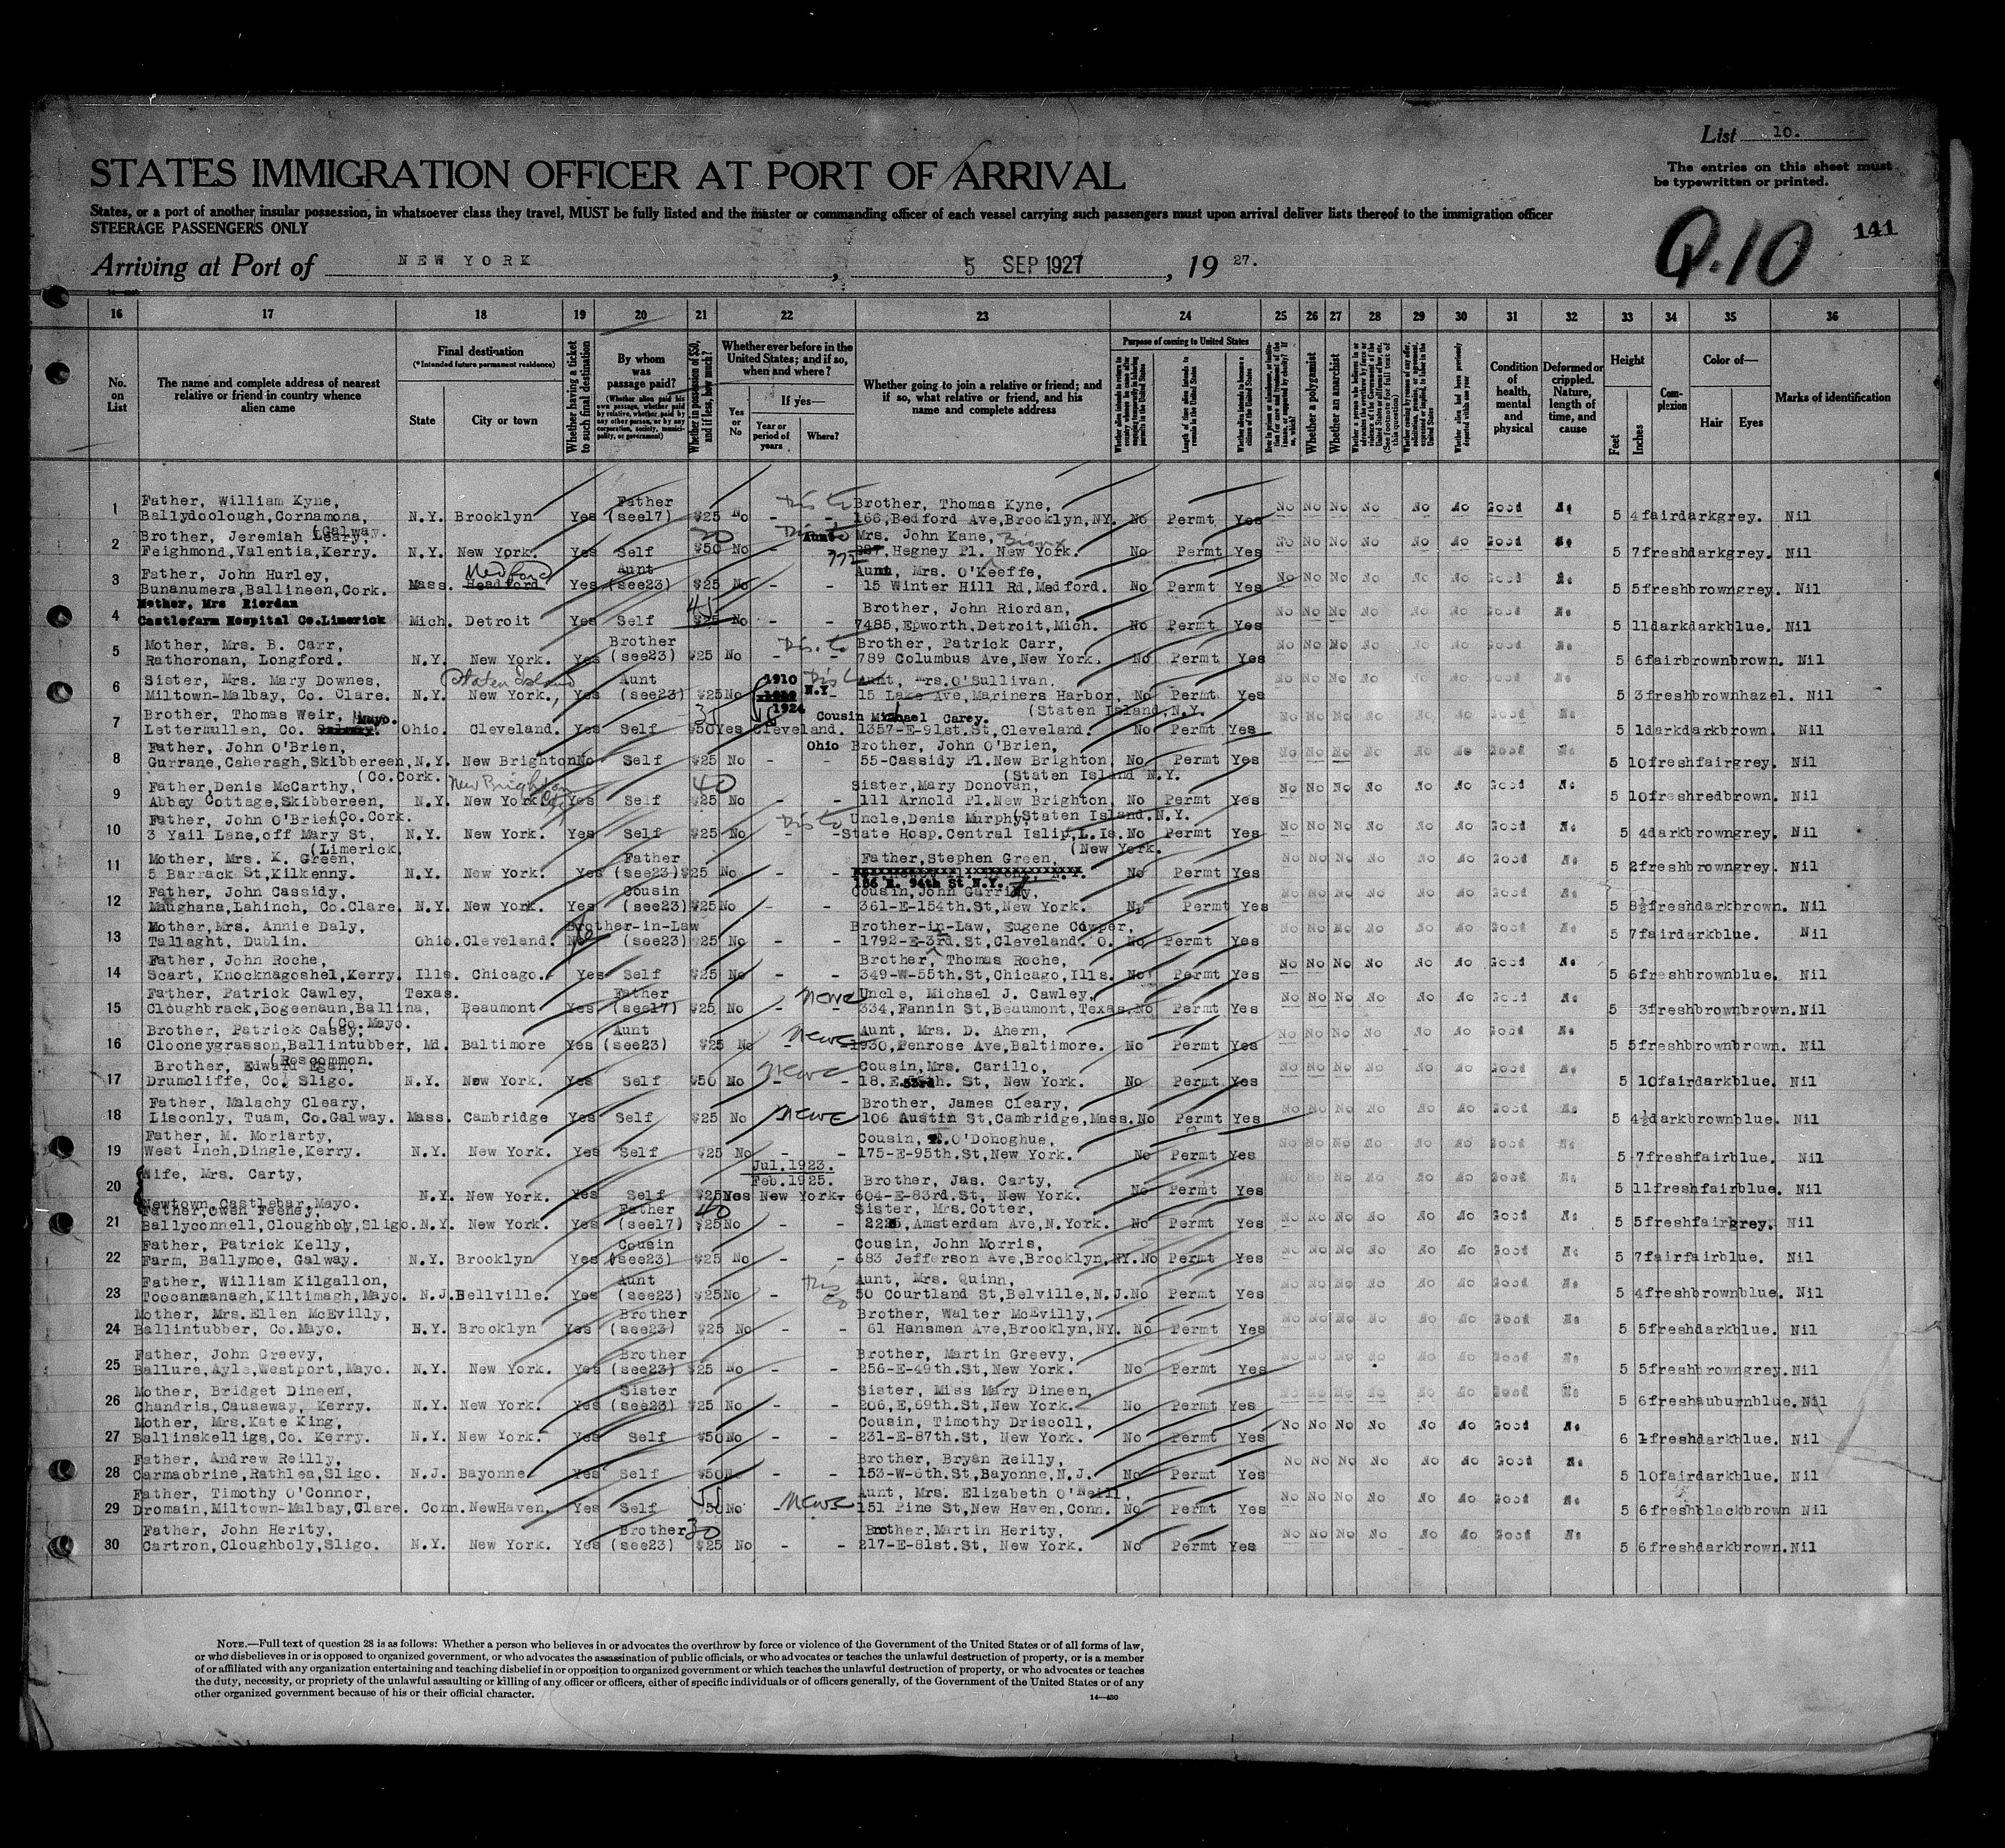 List 10.
STATES IMMIGRATION OFFICER AT PORT OF ARRIVAL
The entries on this sheet must be typewritten or printed.
States, or a port of another insular possession, in whatsoever class they travel, MUST be fully listed and the master or commanding officer of each vessel carrying such passengers must upon arrival deliver lists thereof to the immigration officer
STEERAGE PASSENGERS ONLY
Q.10 141
Arriving at Port of NEW YORK, 5 SEP 1927, 19 27.
16 17 18 19 20 21 22 23 24 25 26 27 28 29 30 31 32 33 34 35 36
No. on List
The name and complete address of nearest relative or friend in country whence alien came
Final destination
(*Intended future permanent residence)
State
City or town
Whether having a ticket to such final destination
By whom was passage paid?
(Whether alien paid his own passage, whether paid by relative, whether paid by any other person, or by any corporation, society, municipality, or government)
Whether in possession of $50, and if less, how much?
Whether ever before in the United States; and if so, when and where?
Yes or No
If yes—
Year or period of years
Where?
Whether going to join a relative or friend; and if so, what relative or friend, and his name and complete address
Purpose of coming to United States
Length of time alien intends to remain in the United States
Whether alien intends to become a citizen of the United States
Whether a polygamist
Whether an anarchist
Condition of health, mental and physical
Deformed or crippled. Nature, length of time, and cause
Height
Feet
Inches
Complexion
Color of—
Hair
Eyes
Marks of identification
1 Father, William Kyne, Father Brother, Thomas Kyne,
Ballydoolough, Cornamona, (Galway. N.Y. Brooklyn Yes (see17) $25 No - - 166, Bedford Ave, Brooklyn, NY. No Permt Yes No No No No No No Good No 5 4 fair dark grey. Nil
2 Brother, Jeremiah Leary, 50 Aunt Mrs. John Kane, Bronx
Feighmond, Valentia, Kerry. N.Y. New York. Yes Self $50 No - 775 Hegney Pl. New York. No Permt Yes No No No No No No Good No 5 7 fresh dark grey. Nil
3 Father, John Hurley, Medford Aunt Aunt, Mrs. O'Keeffe,
Bunanumera, Ballineen, Cork. Mass. Headford Yes (see23) $25 No - - 15 Winter Hill Rd, Medford. No Permt Yes No No No No No No Good No 5 5 fresh brown grey. Nil
4 Mother, Mrs Riordan 45 Brother, John Riordan,
Castlefarm Hospital Co. Limerick Mich. Detroit Yes Self $25 No - - 7485, Epworth, Detroit, Mich. No Permt Yes No No No No No No Good No 5 11 dark dark blue. Nil
5 Mother, Mrs. B. Carr, Brother Brother, Patrick Carr,
Rathcronan, Longford. N.Y. New York. Yes (see23) $25 No - - 789 Columbus Ave, New York. No Permt Yes No No No No No No Good No 5 6 fair brown brown. Nil
6 Sister, Mrs. Mary Downes, Staten Island Aunt Aunt, Mrs. O'Sullivan,
Miltown-Malbay, Co. Clare. N.Y. New York., Yes (see23) $25 No - 15 Lake Ave, Mariners Harbor, (Staten Island, N.Y. No Permt Yes No No No No No No Good No 5 3 fresh brown hazel. Nil
7 Brother, Thomas Weir, Mayo. 35 1910 N.Y. 1924 Cousin Michael Carey.
Lettermullen, Co. Ohio. Cleveland. Yes Self $50 Yes Cleveland. Ohio 1357-E-91st. St, Cleveland. No Permt Yes No No No No No No Good No 5 1 dark dark brown. Nil
8 Father, John O'Brien, Brother, John O'Brien,
Gurrane, Caheragh, Skibbereen, (Co. Cork. N.Y. New Brighton No Self $25 No - - 55-Cassidy Pl. New Brighton, (Staten Island N.Y. No Permt Yes No No No No No No Good No 5 10 fresh fair grey. Nil
9 Father, Denis McCarthy, New Brighton 40 Sister, Mary Donovan,
Abbey Cottage, Skibbereen, (Co. Cork. N.Y. New York. Yes Self $25 No - - 111 Arnold Pl. New Brighton, (Staten Island. N.Y. No Permt Yes No No No No No No Good No 5 10 fresh red brown. Nil
10 Father, John O'Brien, Uncle, Denis Murphy,
3 Yail Lane, off Mary St, (Limerick. N.Y. New York. Yes Self $25 No - - State Hosp. Central Islip, L. Is. (New York. No Permt Yes No No No No No No Good No 5 4 dark brown grey. Nil
11 Mother, Mrs. K. Green, Father Father, Stephen Green,
5 Barrack St, Kilkenny. N.Y. New York. Yes (see23) $25 No - - 156 E. 94th St N.Y. No Permt Yes No No No No No No Good No 5 2 fresh brown grey. Nil
12 Father, John Cassidy, Cousin Cousin, John Garrihy,
Maughana, Lahinch, Co. Clare. N.Y. New York. Yes (see23) $25 No - - 361-E-154th. St, New York. No Permt Yes No No No No No No Good No 5 8½ fresh dark brown. Nil
13 Mother, Mrs. Annie Daly, Brother-in-Law Brother-in-Law, Eugene Cowper,
Tallaght, Dublin. Ohio. Cleveland. No (see23) $25 No - - 1792-E-3rd. St, Cleveland. O. No Permt Yes No No No No No No Good No 5 7 fair dark blue. Nil
14 Father, John Roche, Brother, Thomas Roche,
Scart, Knocknagoshel, Kerry. Ills. Chicago. Yes Self $25 No - - 349-W-55th. St, Chicago, Ills. No Permt Yes No No No No No No Good No 5 6 fresh brown blue. Nil
15 Father, Patrick Cawley, Texas. Father Uncle, Michael J. Cawley,
Cloughbrack, Bogeenaun, Ballina, (Co. Mayo. Beaumont Yes (see17) $25 No - 334, Fannin St, Beaumont, Texas. No Permt Yes No No No No No No Good No 5 3 fresh brown brown. Nil
16 Brother, Patrick Casey, Aunt Aunt, Mrs. D. Ahern,
Clooneygrasson, Ballintubber, (Roscommon. Md. Baltimore Yes (see23) $25 No - 1930, Penrose Ave, Baltimore. No Permt Yes No No No No No No Good No 5 5 fresh brown brown. Nil
17 Brother, Edward Egan, Cousin, Mrs. Carillo,
Drumcliffe, Co. Sligo. N.Y. New York. Yes Self $50 No - - 18. E. 53rd. St, New York. No Permt Yes No No No No No No Good No 5 10 fair dark blue. Nil
18 Father, Malachy Cleary, Brother, James Cleary,
Lisconly, Tuam, Co. Galway. Mass. Cambridge Yes Self $25 No 106 Austin St, Cambridge, Mass. No Permt Yes No No No No No No Good No 5 4½ dark brown blue. Nil
19 Father, M. Moriarty, Cousin, O'Donoghue,
West Inch, Dingle, Kerry. N.Y. New York. Yes Self $25 No - - 175-E-95th. St, New York. No Permt Yes No No No No No No Good No 5 7 fresh fair blue. Nil
20 Wife, Mrs. Carty, Jul. 1923. Feb. 1925. Brother, Jas. Carty,
Newtown, Castlebar, Mayo. N.Y. New York. Yes Self $25 Yes New York- 604-E-83rd. St, New York. No Permt Yes No No No No No No Good No 5 11 fresh fair blue. Nil
21 Father, Owen Feeney, Father 40 Sister, Mrs. Cotter,
Ballyconnell, Cloughboly, Sligo. N.Y. New York. Yes (see17) $25 No - - Amsterdam Ave, N. York. No Permt Yes No No No No No No Good No 5 5 fresh fair grey. Nil
22 Father, Patrick Kelly, Cousin Cousin, John Morris,
Farm, Ballymoe, Galway. N.Y. Brooklyn Yes (see23) $25 No - - 683 Jefferson Ave, Brooklyn, NY. No Permt Yes No No No No No No Good No 5 7 fair fair blue. Nil
23 Father, William Kilgallon, Aunt Aunt, Mrs. Quinn,
Toocanmanagh, Kiltimagh, Mayo. N.J. Bellville. Yes (see23) $25 No - 50 Courtland St, Belville, N.J. No Permt Yes No No No No No No Good No 5 4 fresh brown blue. Nil
24 Mother, Mrs. Ellen McEvilly, Brother Brother, Walter McEvilly,
Ballintubber, Co. Mayo. N.Y. Brooklyn Yes (see23) $25 No - - 61 Hansmen Ave, Brooklyn, NY. No Permt Yes No No No No No No Good No 5 5 fresh dark blue. Nil
25 Father, John Greevy, Brother Brother, Martin Greevy,
Ballure, Ayle, Westport, Mayo. N.Y. New York. Yes (see23) $25 No - - 256-E-49th. St, New York. No Permt Yes No No No No No No Good No 5 5 fresh brown grey. Nil
26 Mother, Bridget Dineen, Sister Sister, Miss Mary Dineen,
Chandris, Causeway, Kerry. N.Y. New York. Yes (see23) $25 No - - 206, E, 69th. St, New York. No Permt Yes No No No No No No Good No 5 6 fresh auburn blue. Nil
27 Mother, Mrs. Kate King, Cousin, Timothy Driscoll,
Ballinskelligs, Co. Kerry. N.Y. New York. Yes Self $50 No - - 231-E-87th. St, New York. No Permt Yes No No No No No No Good No 6 1 fresh dark blue. Nil
28 Father, Andrew Reilly, Brother, Bryan Reilly,
Carmacbrine, Rathlea, Sligo. N.J. Bayonne Yes Self $50 No - - 153-W-6th. St, Bayonne, N.J. No Permt Yes No No No No No No Good No 5 10 fair dark blue. Nil
29 Father, Timothy O'Connor, 55 Aunt, Mrs. Elizabeth O'Neill,
Dromain, Miltown-Malbay, Clare. Conn. New Haven. Yes Self $50 No - 151 Pine St, New Haven, Conn. No Permt Yes No No No No No No Good No 5 6 fresh black brown Nil
30 Father, John Herity, Brother 30 Brother, Martin Herity,
Cartron, Cloughboly, Sligo. N.Y. New York. Yes (see23) $25 No - - 217-E-81st. St, New York. No Permt Yes No No No No No No Good No 5 6 fresh dark brown. Nil
NOTE.—Full text of question 28 is as follows: Whether a person who believes in or advocates the overthrow by force or violence of the Government of the United States or of all forms of law,
or who disbelieves in or is opposed to organized government, or who advocates the assassination of public officials, or who advocates or teaches the unlawful destruction of property, or is a member
of or affiliated with any organization entertaining and teaching disbelief in or opposition to organized government or which teaches the unlawful destruction of property, or who advocates or teaches
the duty, necessity, or propriety of the unlawful assaulting or killing of any officer or officers, either of specific individuals or of officers generally, of the Government of the United States or of any
other organized government because of his or their official character.
14—430